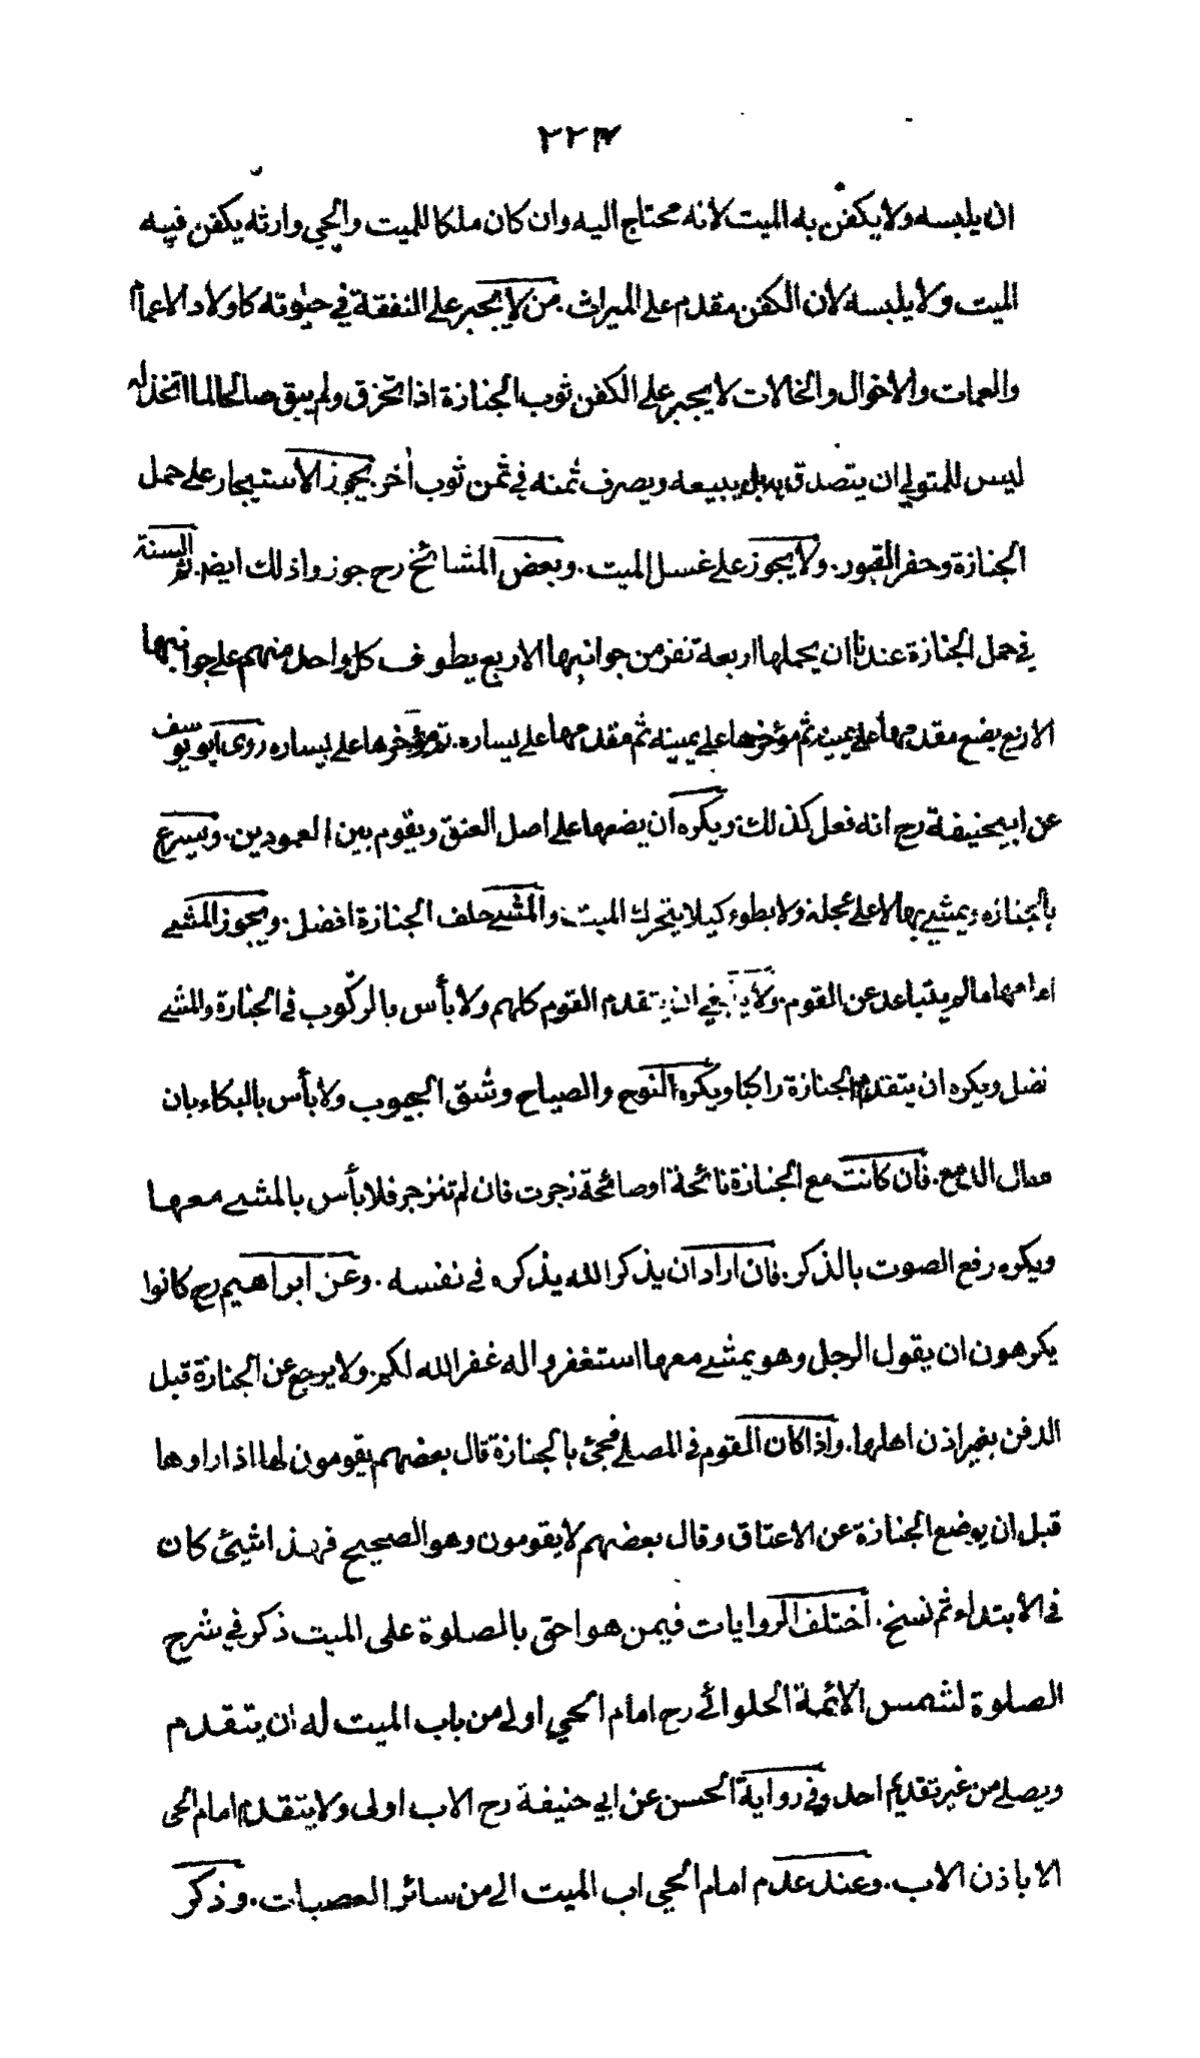 ان يلبسه ولا يكفن به الميت لانه محتاج اليه وان كان ملكا للميت والحي وارثه يكفن فيه
الميت ولا يلبسه لان الكفن مقدم على الميراث. من لا يجبر على النفقة في حيوته كاولاد الاعمام
والعمات والاخوال والخالات لا يجبر على الكفن ثوب الجنازة اذا تخرق ولم يبق صالحا لما اتخذ له
ليس للمتولي ان يتصدق به بل يبيعه ويصرف ثمنه في ثمن ثوب أخر. يجوز الاستيجار على حمل
الجنازة وحفر القبور. ولا يجوز على غسل الميت. وبعض المشائخ رح جوزوا ذلك ايضا. ثم السنة
في حمل الجنازة عندنا ان يحملها اربعة نفر من جوانبها الاربع يطوف كل واحد منهم على جوانبها
الاربع يضع مقدمها على يمينه ثم مؤخرها على يمينه ثم مقدمها على يساره. ثم مؤخرها على يساره روى ابو يوسف
عن ابيحنيفة رح انه فعل كذلك ويكره ان يضعها على اصل العنق ويقوم بين العمودين. ويسرع
بالجنازه ويمشي بها لا على عجلة ولا بطوء كيلا يتحرك الميت والمشي خلف الجنازة افضل. ويجوز المشي
امامها مالم يتباعد عن القوم. ولا ينبغي ان يتقدم القوم كلهم ولا بأس بالركوب في الجنازة والمشي
فضل ويكره ان يتقدم الجنازة راكبا ويكره النوح والصياح وشق الجيوب ولا بأس بالبكاء بان
الدمع. فان كانت مع الجنازة نائحة او صائحة زجرت فان لم تنزجر فلا بأس بالمشي معها
ويكره رفع الصوت بالذكر. فان اراد ان يذكر الله يذكره في نفسه. وعن ابراهيم رح كانوا
يكرهون ان يقول الرجل وهو يمشي معها استغفروا له غفر الله لكم. ولا يرجع عن الجنازة قبل
الدفن بغير اذن اهلها. واذا كان القوم في المصلى فجئ بالجنازة قال بعضهم يقومون لها اذا راوها
قبل ان يوضع الجنازة عن الاعتاق وقال بعضهم لا يقومون وهو الصحيح فهذا شيئ كان
في الابتداء ثم نسخ. اختلف الروايات فيمن هو احق بالصلوة على الميت ذكر في شرح
الصلوة لشمس الائمة الحلوائي رح امام الحي اولى من باب الميت له ان يتقدم
ويصلي من غير تقديم احد وفي رواية الحسن عن ابي حنيفة رح الاب اولى ولا يتقدم امام الحى
الا باذن الاب. وعند عدم امام الحي اب الميت الى من سائر العصبات. وذكر